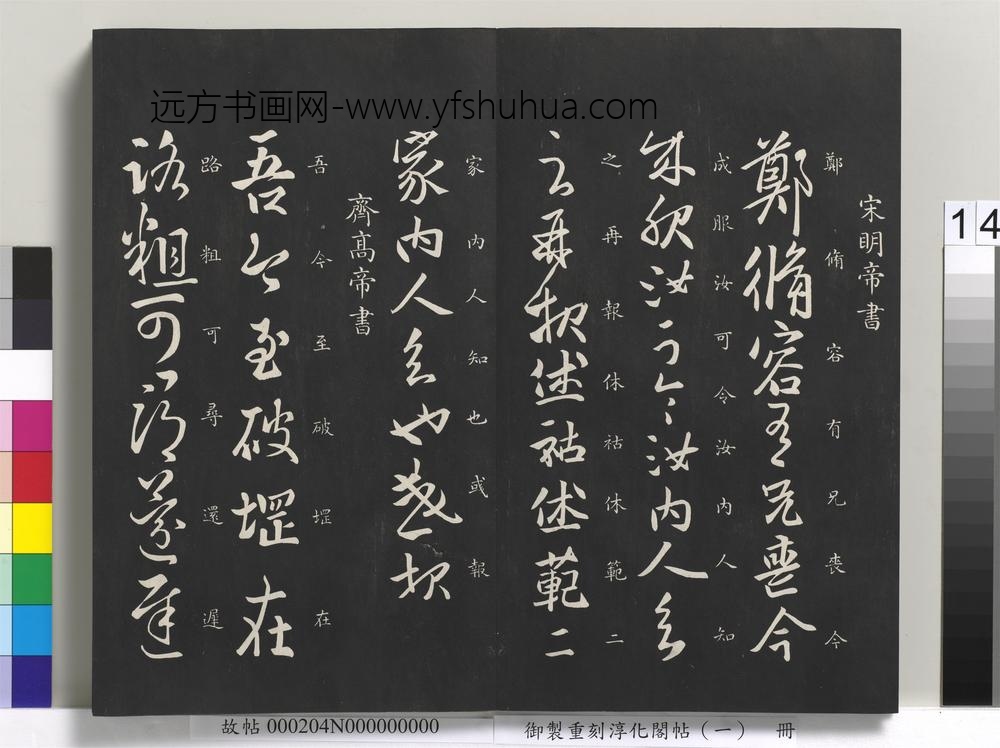 远方书画网-www.yfshuhua.com
宋明帝書
鄭脩容有兄喪今
鄭脩容有兄喪今
成服汝可令汝内人知
成服汝可令汝内人知
之再報休祜休範二
之再報休祜休範二
家内人知也或報
家内人知也或報
齊高帝書
吾今至破堽在
吾今至破堽在
路粗可尋還遲
路粗可尋還遲
14
故帖 000204N000000000
御製重刻淳化閣帖（一） 冊